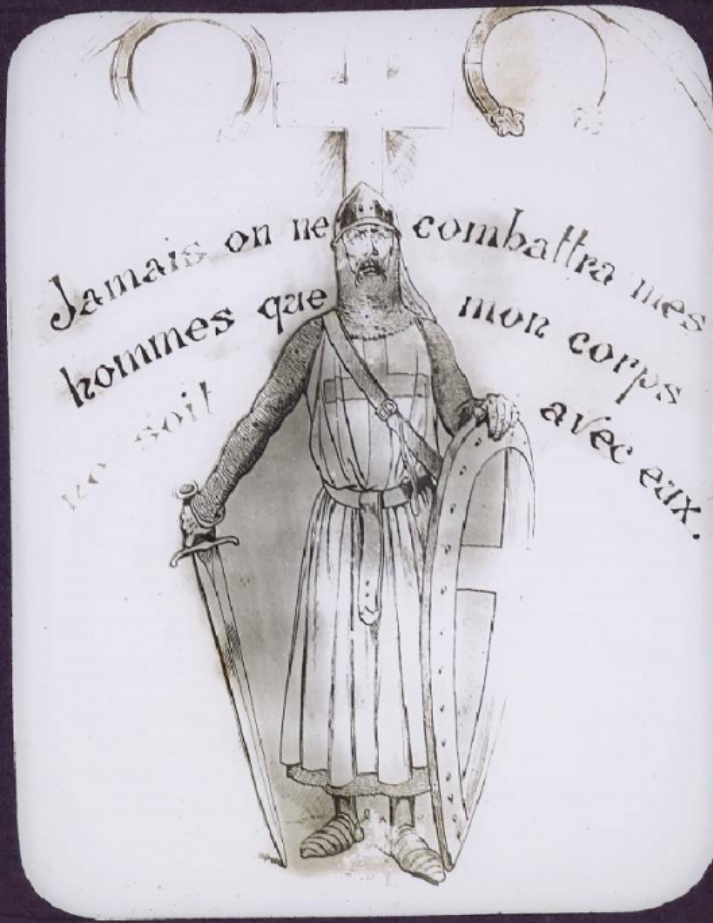 Jamais on ne combattra mes
hommes que mon corps
soit avec eux.